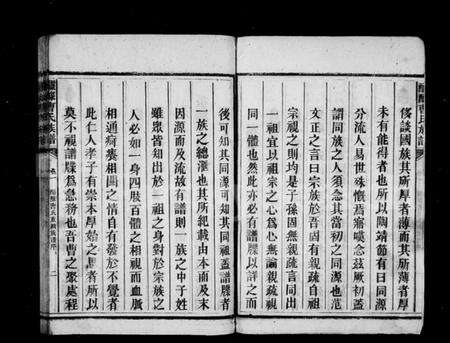 侈談國族其所厚者薄而其所薄者厚
未有能得者也所以陶靖節有曰同源
分流人易世殊慨焉寤嘆念茲厥初蓋
謂同族之人須念其當初之同源也范
文正之言曰宗族於吾固有親疏自祖
宗視之則均是子孫固無親疏言同出
一祖宜以祖宗之心為心無論親疏視
同一體也然此亦必有譜牒以詳之而
後可知其同源可知其同祖蓋譜牒者
一族之總滙也其所親載由本而及末
因源而及流故有譜則一族之中子姓
雖眾皆知出於一祖之身對於宗族之
人必如一身四肢百體之相親而血脈
相通痾癢相關之情自有發於不覺者
此仁人孝子有崇本厚始之思者所以
莫不視譜牒為急務也吾曹之聚處程
曹氏族譜
二